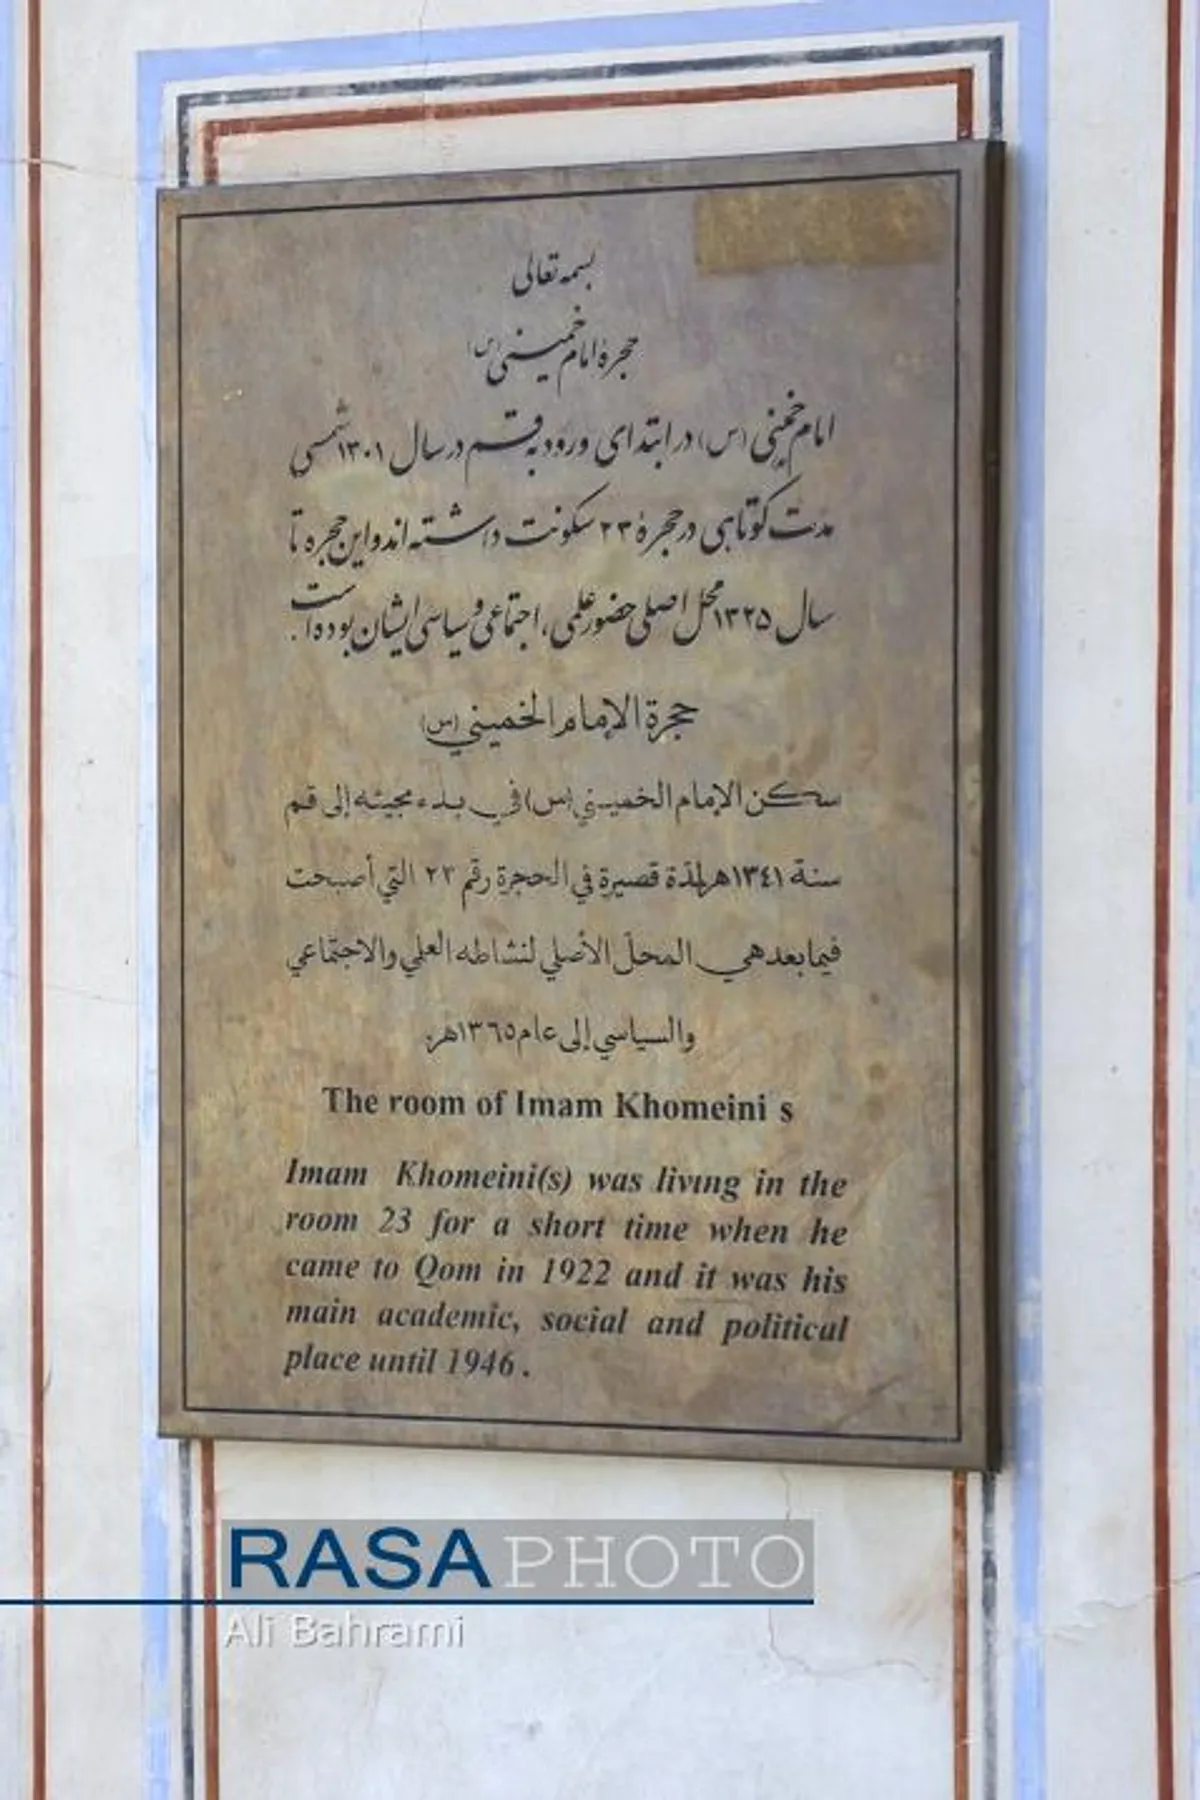 بسمه تعالی
حجرهٔ امام خمینی (س)
امام خمینی (س) در ابتدای ورود به قم در سال ۱۳۰۱ شمسی
مدت کوتاهی در حجرهٔ ۲۳ سکونت داشته اند و این حجره تا
سال ۱۳۲۵ محل اصلی حضور علمی، اجتماعی و سیاسی ایشان بوده است.
حجرة الإمام الخميني (س)
سكن الإمام الخميني (س) في بدء مجيئه إلى قم
سنة ١٣٤١هـ لمدّة قصيرة في الحجرة رقم ٢٣ التي أصبحت
فيما بعد هي المحلّ الأصلي لنشاطه العلمي والاجتماعي
والسياسي إلى عام ١٣٦٥هـ.
The room of Imam Khomeini s
Imam Khomeini(s) was living in the
room 23 for a short time when he
came to Qom in 1922 and it was his
main academic, social and political
place until 1946 .
RASA PHOTO
Ali Bahrami